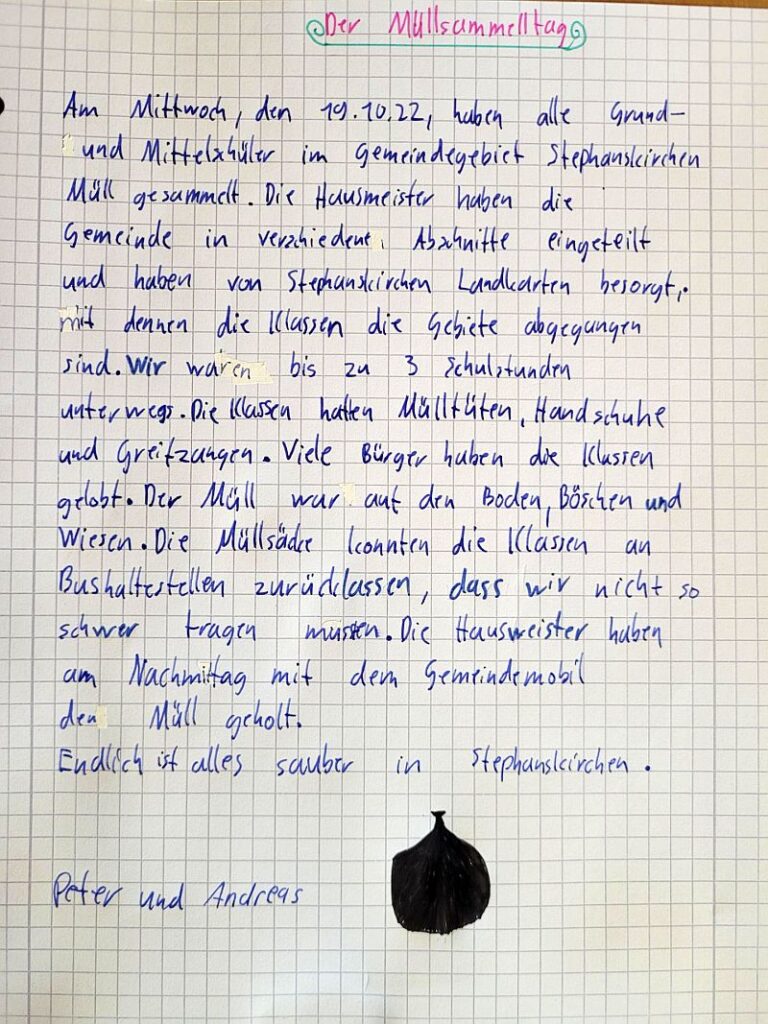 Der Müllsammeltag
Am Mittwoch, den 19.10.22, haben alle Grund-
und Mittelschüler im Gemeindegebiet Stephanskirchen
Müll gesammelt. Die Hausmeister haben die
Gemeinde in verschiedene Abschnitte eingeteilt
und haben von Stephanskirchen Landkarten besorgt,
mit dennen die Klassen die Gebiete abgegangen
sind. Wir waren bis zu 3 Schulstunden
unterwegs. Die Klassen hatten Mülltüten, Handschuhe
und Greifzangen. Viele Bürger haben die Klassen
gelobt. Der Müll war auf den Boden, Böschen und
Wiesen. Die Müllsäcke konnten die Klassen an
Bushaltestellen zurücklassen, dass wir nicht so
schwer tragen mussten. Die Hausmeister haben
am Nachmittag mit dem Gemeindemobil
den Müll geholt.
Endlich ist alles sauber in Stephanskirchen.
Peter und Andreas